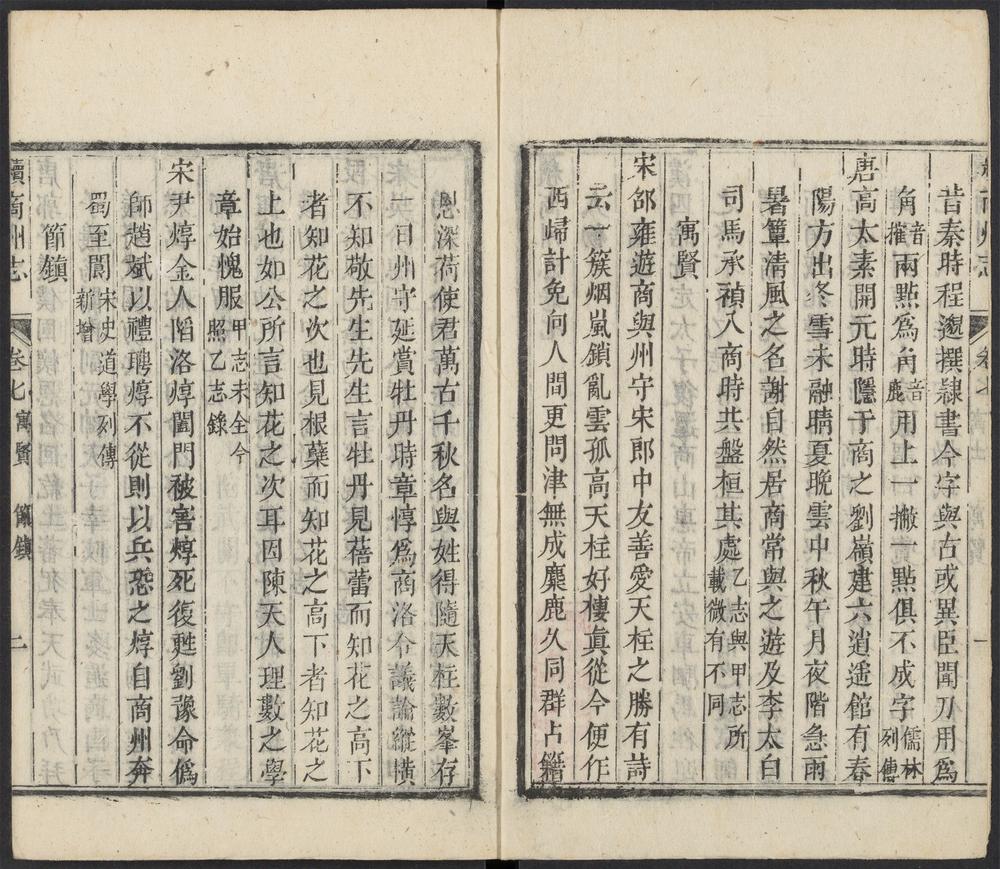 昔秦時程邈撰隸書今字與古或異臣聞刀用為
角音攉兩點為角音鹿用上一撇一點俱不成字儒林列傳
唐高太素開元時隱于商之劉嶺建六逍遥館有春
陽方出冬雪未融晴夏晚雲中秋午月夜階急雨
暑簟清風之名謝自然居商常與之遊及李太白
司馬承禎入商時共盤桓其處乙志與甲志所載微有不同
寓賢
宋邵雍遊商與州守宋郎中友善愛天柱之勝有詩
云一簇烟嵐鎖亂雲孤高天柱好樓真從今便作
西歸計免向人間更問津無成麋鹿久同群占籍
恩深荷使君萬古千秋名與姓得隨天柱數峯存
一日州守延賞牡丹時章惇為商洛令議論縱橫
不知敬先生先生言牡丹見蓓蕾而知花之高下
者知花之次也見根蘖而知花之高下者知花之
上也如公所言知花之次耳因陳天人理數之學
章始愧服甲志未全今照乙志錄
宋尹焞金人陷洛焞闔門被害焞死復甦劉豫命偽
師趙斌以禮聘焞不從則以兵恐之焞自商州奔
蜀至閬宋史道學列傳新增
節鎮
續商州志 卷七 寓賢 節鎮 二